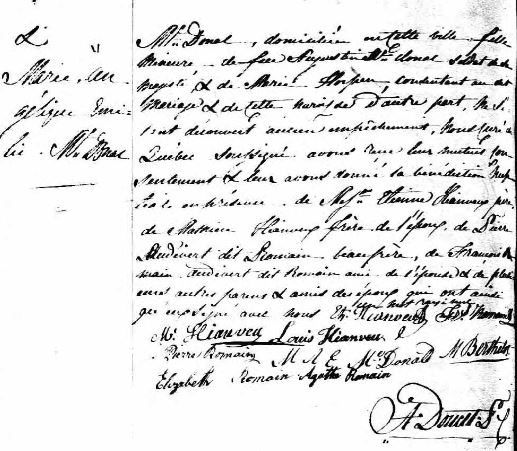 &
"
Marie, An-
gélique Emi-
lie McDonal
McDonal, domiciliée en cette ville, fille
mineure de feu Augustin McDonal soldat de sa
majesté & de Marie Stopeu, consentant au dit
mariage & de cette paroisse d'autre part, ne s'é-
tant découvert aucun empêchement, Nous curé de
Québec soussigné avons reçu leur mutuel con-
sentement & leur avons donné la bénédiction nup-
tiale en présence de Messrs Etienne Hianveu père
de Mathieu Hianveu frère de l'époux, de Pierre
Audivert dit Romain beaufrère, de François Ro-
main Audivert dit Romain ami de l'épouse & de plusi-
eurs autres parens & amis des époux qui ont ainsi
que l'époux signé avec nous
un mot rayé nul
Et. Hianveux Frs Romain
Mu Hianveu Louis Hianveu
Pierre Romain M A E McDonald M Berthelot
Elizabeth Romain Agathe Romain
A Doucet Ptr